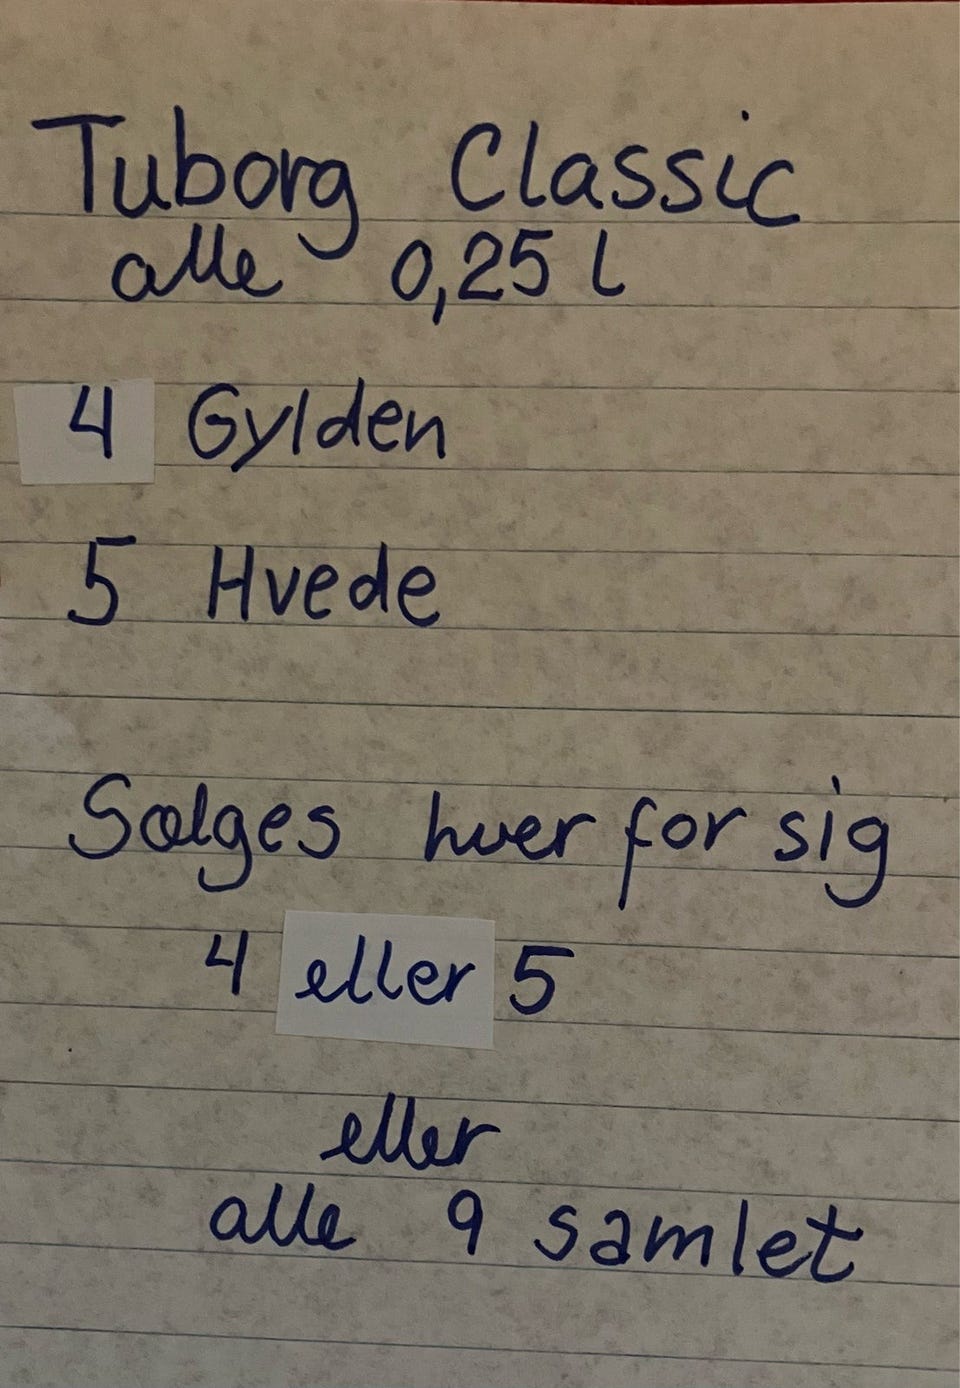 Tuborg Classic
alle 0,25 l
4 Gylden
5 Hvede
Sælges hver for sig
4 eller 5
eller
alle 9 samlet